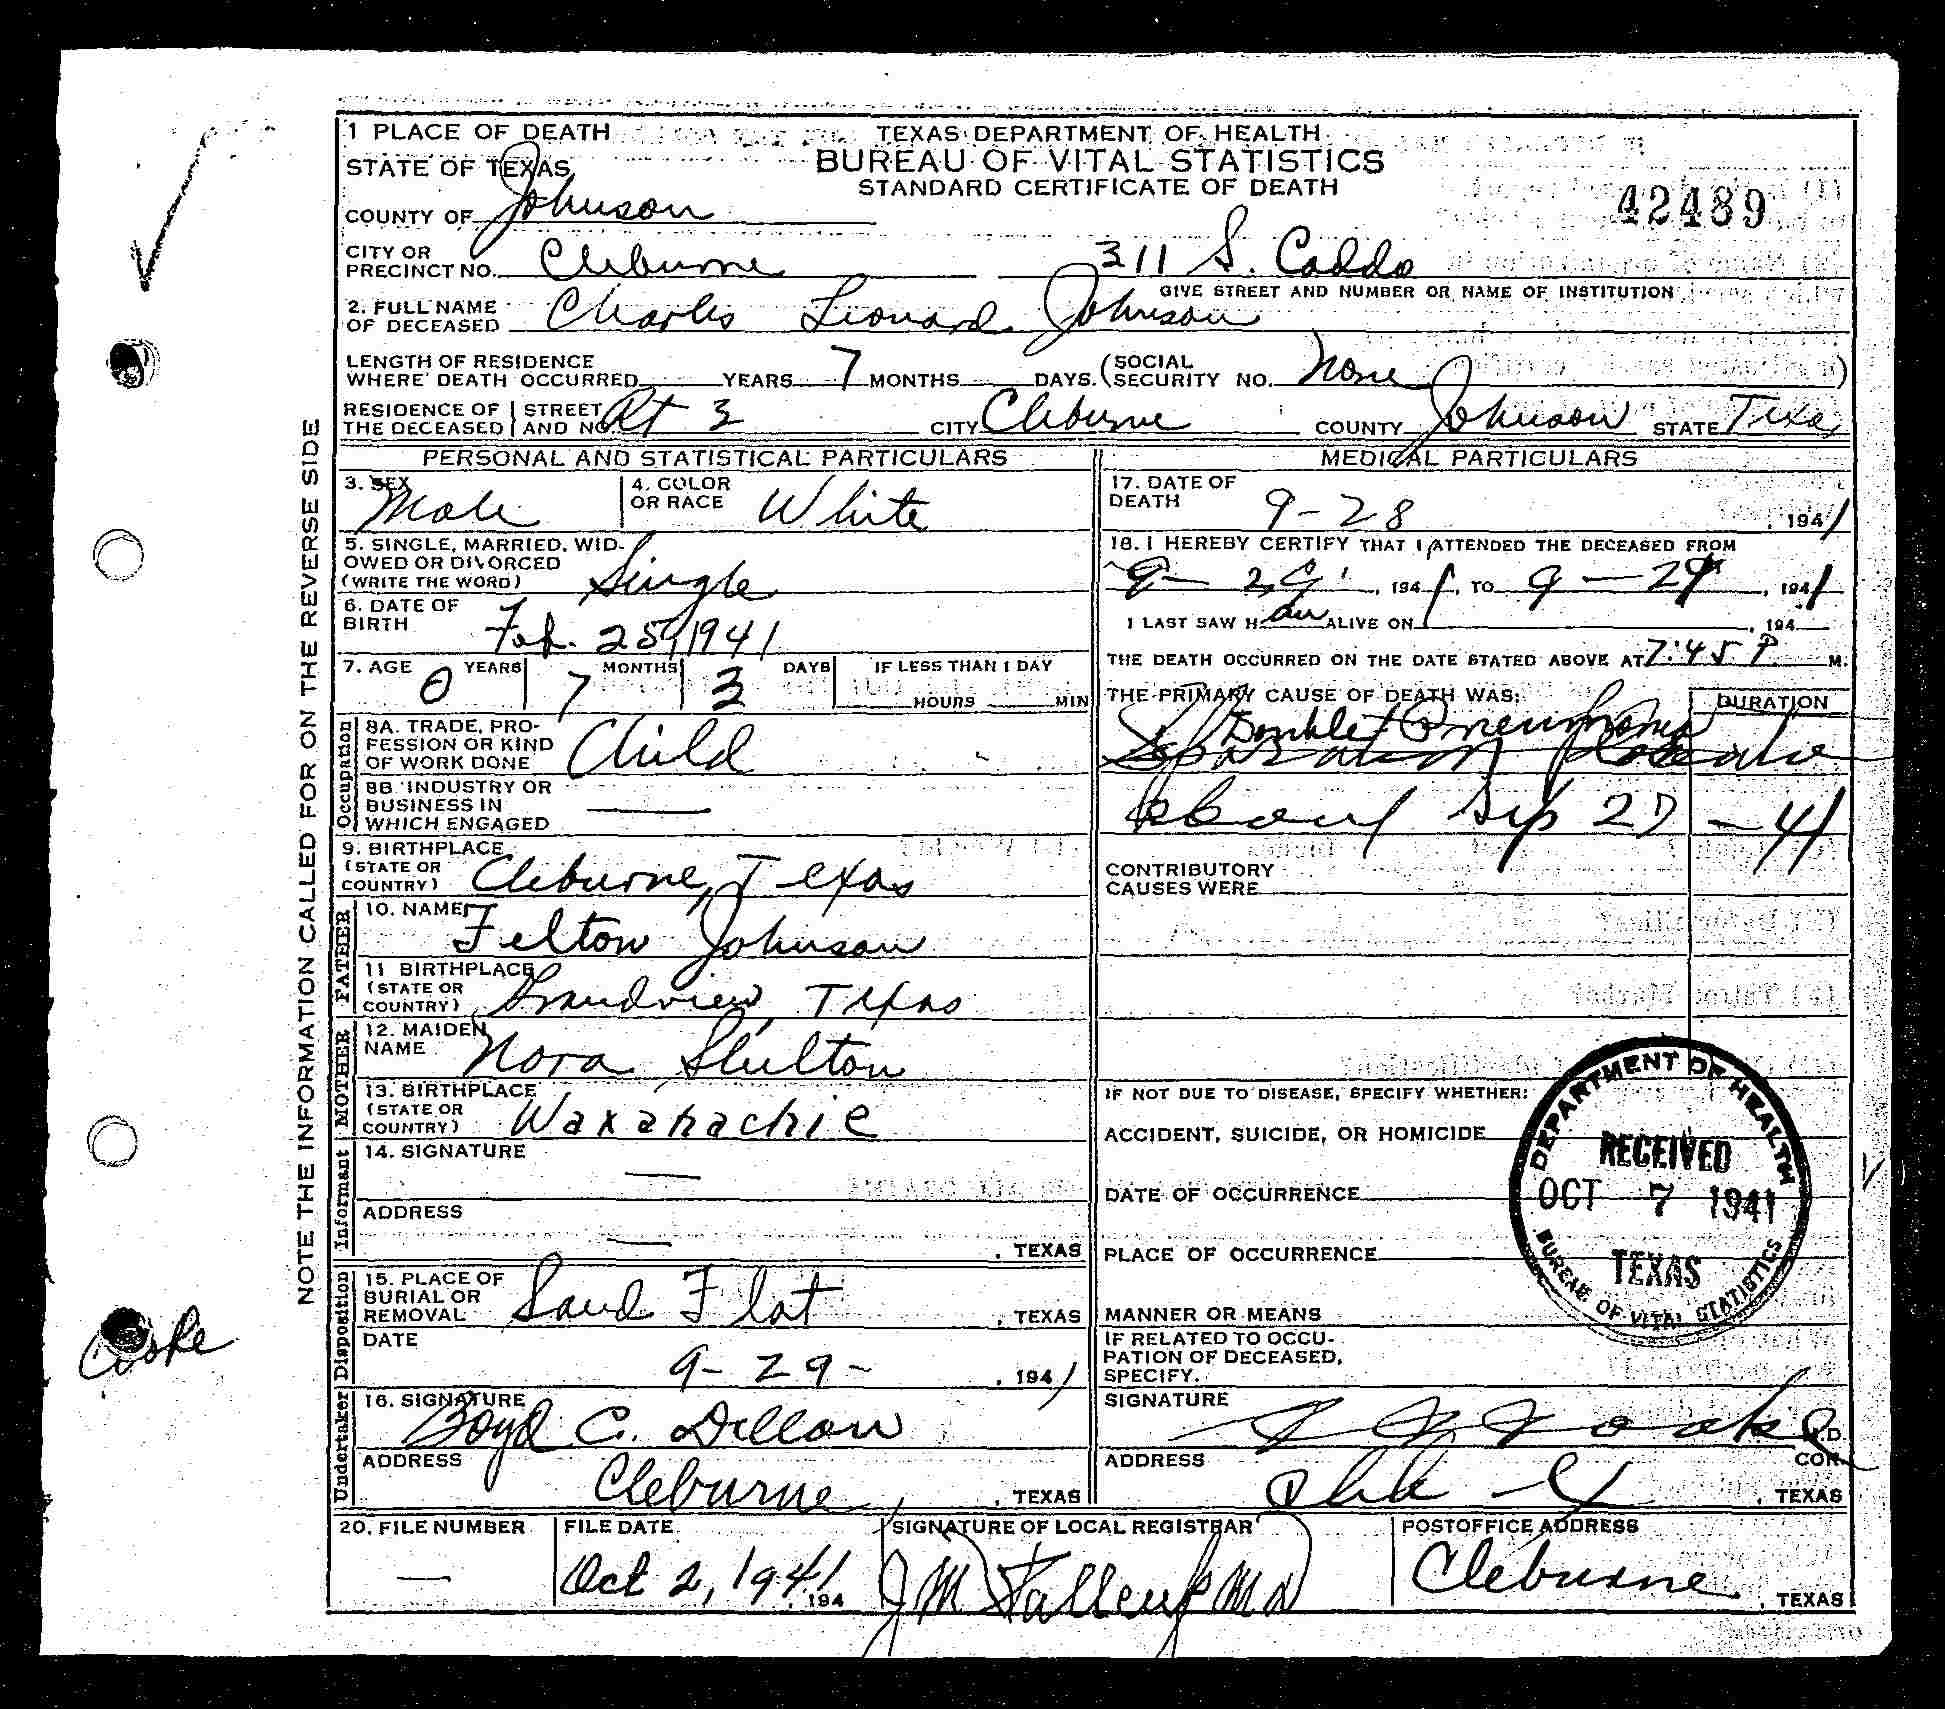 1 PLACE OF DEATH
STATE OF TEXAS
TEXAS DEPARTMENT OF HEALTH
BUREAU OF VITAL STATISTICS
STANDARD CERTIFICATE OF DEATH
42489
COUNTY OF Johnson
CITY OR PRECINCT NO. Cleburne 311 S. Caddo
GIVE STREET AND NUMBER OR NAME OF INSTITUTION
2. FULL NAME OF DECEASED Charles Leonard Johnson
LENGTH OF RESIDENCE WHERE DEATH OCCURRED YEARS 7 MONTHS DAYS. (SOCIAL SECURITY NO. None )
RESIDENCE OF THE DECEASED STREET AND NO. Rt 3 CITY Cleburne COUNTY Johnson STATE Texas
NOTE THE INFORMATION CALLED FOR ON THE REVERSE SIDE
PERSONAL AND STATISTICAL PARTICULARS
3. SEX Male
4. COLOR OR RACE White
5. SINGLE, MARRIED, WIDOWED OR DIVORCED (WRITE THE WORD) Single
6. DATE OF BIRTH Feb. 25, 1941
7. AGE 0 YEARS 7 MONTHS 3 DAYS IF LESS THAN 1 DAY HOURS MIN
Occupation
8A. TRADE, PROFESSION OR KIND OF WORK DONE Child
8B. INDUSTRY OR BUSINESS IN WHICH ENGAGED —
9. BIRTHPLACE (STATE OR COUNTRY) Cleburne, Texas
FATHER
10. NAME Felton Johnson
11 BIRTHPLACE (STATE OR COUNTRY) Grandview, Texas
MOTHER
12. MAIDEN NAME Nora Shelton
13. BIRTHPLACE (STATE OR COUNTRY) Waxahachie
Informant
14. SIGNATURE —
ADDRESS — , TEXAS
Disposition
15. PLACE OF BURIAL OR REMOVAL Sand Flat , TEXAS
DATE 9-29- , 1941
Undertaker
16. SIGNATURE Boyd C. Dillon
ADDRESS Cleburne , TEXAS
MEDICAL PARTICULARS
17. DATE OF DEATH 9-28 , 1941
18. I HEREBY CERTIFY THAT I ATTENDED THE DECEASED FROM
9- 29 , 1941, TO 9-29 , 1941
I LAST SAW H ALIVE ON , 194
THE DEATH OCCURRED ON THE DATE STATED ABOVE AT 7:45 P. M.
THE PRIMARY CAUSE OF DEATH WAS: DURATION
Double Pneumonia
about Sep 27 - 41
CONTRIBUTORY CAUSES WERE
IF NOT DUE TO DISEASE, SPECIFY WHETHER:
ACCIDENT, SUICIDE, OR HOMICIDE
DATE OF OCCURRENCE
PLACE OF OCCURRENCE
MANNER OR MEANS
IF RELATED TO OCCUPATION OF DECEASED, SPECIFY.
SIGNATURE M.D.
COR.
ADDRESS , TEXAS
DEPARTMENT OF HEALTH
RECEIVED
OCT 7 1941
TEXAS
BUREAU OF VITAL STATISTICS
20. FILE NUMBER —
FILE DATE Oct 2, 1941 , 194
SIGNATURE OF LOCAL REGISTRAR
POSTOFFICE ADDRESS Cleburne , TEXAS